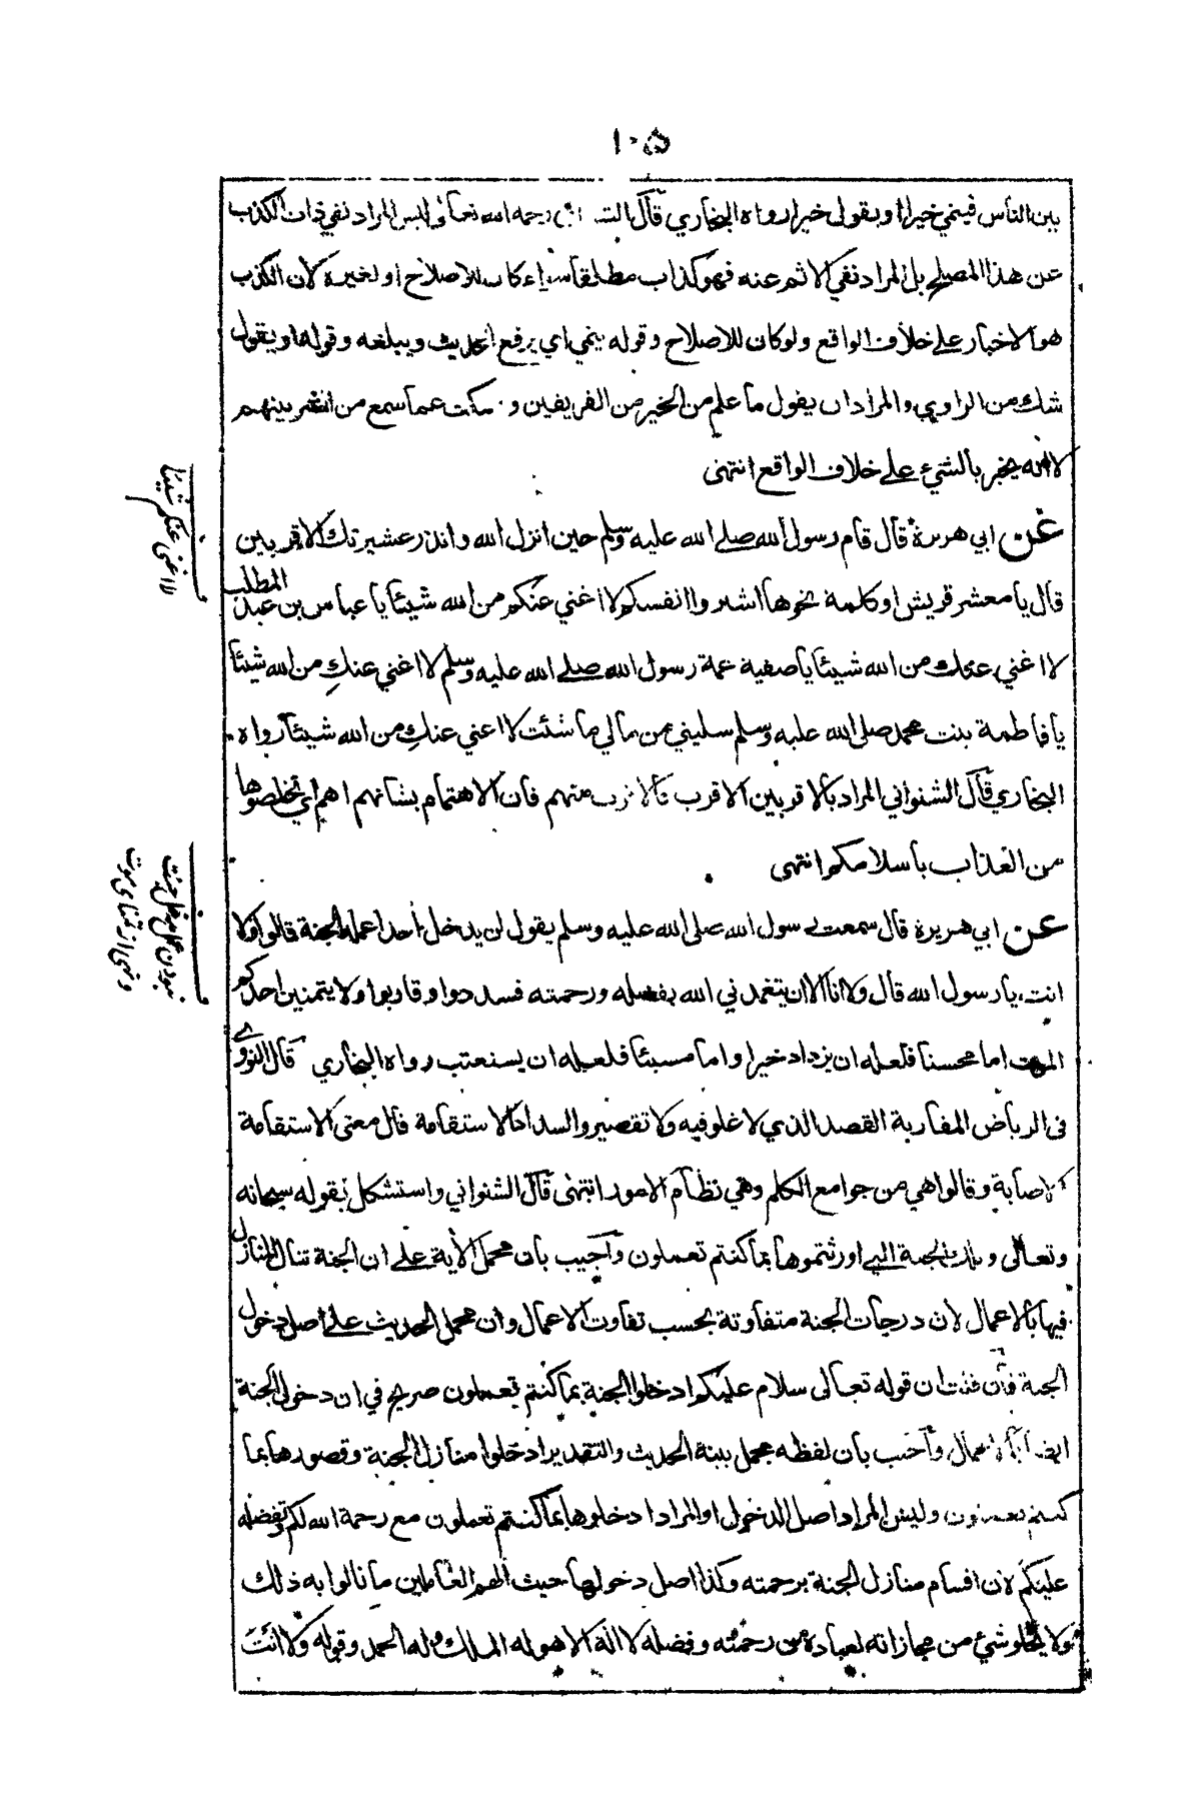 ١٠٥
بين الناس فينمي خيرا او يقول خيرا رواه البخاري قال رحمه الله تعالى ليس المراد نفي ذات الكذب
عن هذا المصلح بل المراد نفي الاثم عنه فهو كذاب مطلقا سواء كان للاصلاح او لغيره لان الكذب
هو الاخبار على خلاف الواقع ولو كان للاصلاح وقوله ينمي اي يرفع الحديث ويبلغه وقوله او يقول
شك من الراوي والمراد ان يقول ما علم من الخير من الفريقين و يسكت عما سمع من الشر بينهم
لا انه يخبر بالشيء على خلاف الواقع انتهى
عن ابي هريرة قال قام رسول الله صلى الله عليه وسلم حين انزل الله وانذر عشيرتك الاقربين
قال يا معشر قريش او كلمة نحوها اشتروا انفسكم لا اغني عنكم من الله شيئا يا عباس بن عبد المطلب
لا اغني عنك من الله شيئا يا صفية عمة رسول الله صلى الله عليه وسلم لا اغني عنكِ من الله شيئا
يا فاطمة بنت محمد صلى الله عليه وسلم سليني من مالي ما شئت لا اغني عنكِ من الله شيئا رواه
البخاري قال الشنواني المراد بالاقربين الاقرب فالاقرب منهم فان الاهتمام بشانهم اهم اي تخلصوها
من العذاب باسلامكم انتهى
لا اغني عنكم شيئا
عن ابي هريرة قال سمعت رسول الله صلى الله عليه وسلم يقول لن يدخل احدا عمله الجنة قالوا ولا
انت يا رسول الله قال ولا انا الا ان يتغمدني الله بفضله ورحمته فسددوا وقاربوا ولا يتمنين احدكم
الموت اما محسنا فلعله ان يزداد خيرا واما مسيئا فلعله ان يستعتب رواه البخاري قال النووي
في الرياض المقاربة القصد الذي لا غلو فيه ولا تقصير والسداد الاستقامة قال معنى الاستقامة
الاصابة وقالوا هي من جوامع الكلم وهي نظام الامور انتهى قال الشنواني واستشكل بقوله سبحانه
وتعالى وتلك الجنة التي اورثتموها بما كنتم تعملون واجيب بان محمل الآية على ان الجنة تنال المنازل
فيها بالاعمال لان درجات الجنة متفاوتة بحسب تفاوت الاعمال وان محمل الحديث على اصل دخول
الجنة فان قلت ان قوله تعالى سلام عليكم ادخلوا الجنة بما كنتم تعملون صريح في ان دخول الجنة
ايضا بالاعمال واجيب بان لفظه مجمل بينه الحديث والتقدير ادخلوا منازل الجنة وقصورها بما
كنتم تعملون وليس المراد اصل الدخول او المراد ادخلوها بما كنتم تعملون مع رحمة الله لكم وتفضله
عليكم لان اقسام منازل الجنة برحمته وكذا اصل دخولها حيث الهم العاملين ما نالوا به ذلك
ولا يخلو شئ من مجازاته لعباده من رحمته وفضله لا اله الا هو له الملك وله الحمد وقوله ولا انت
نبودن عمل جنت
ونهي از تمناي موت